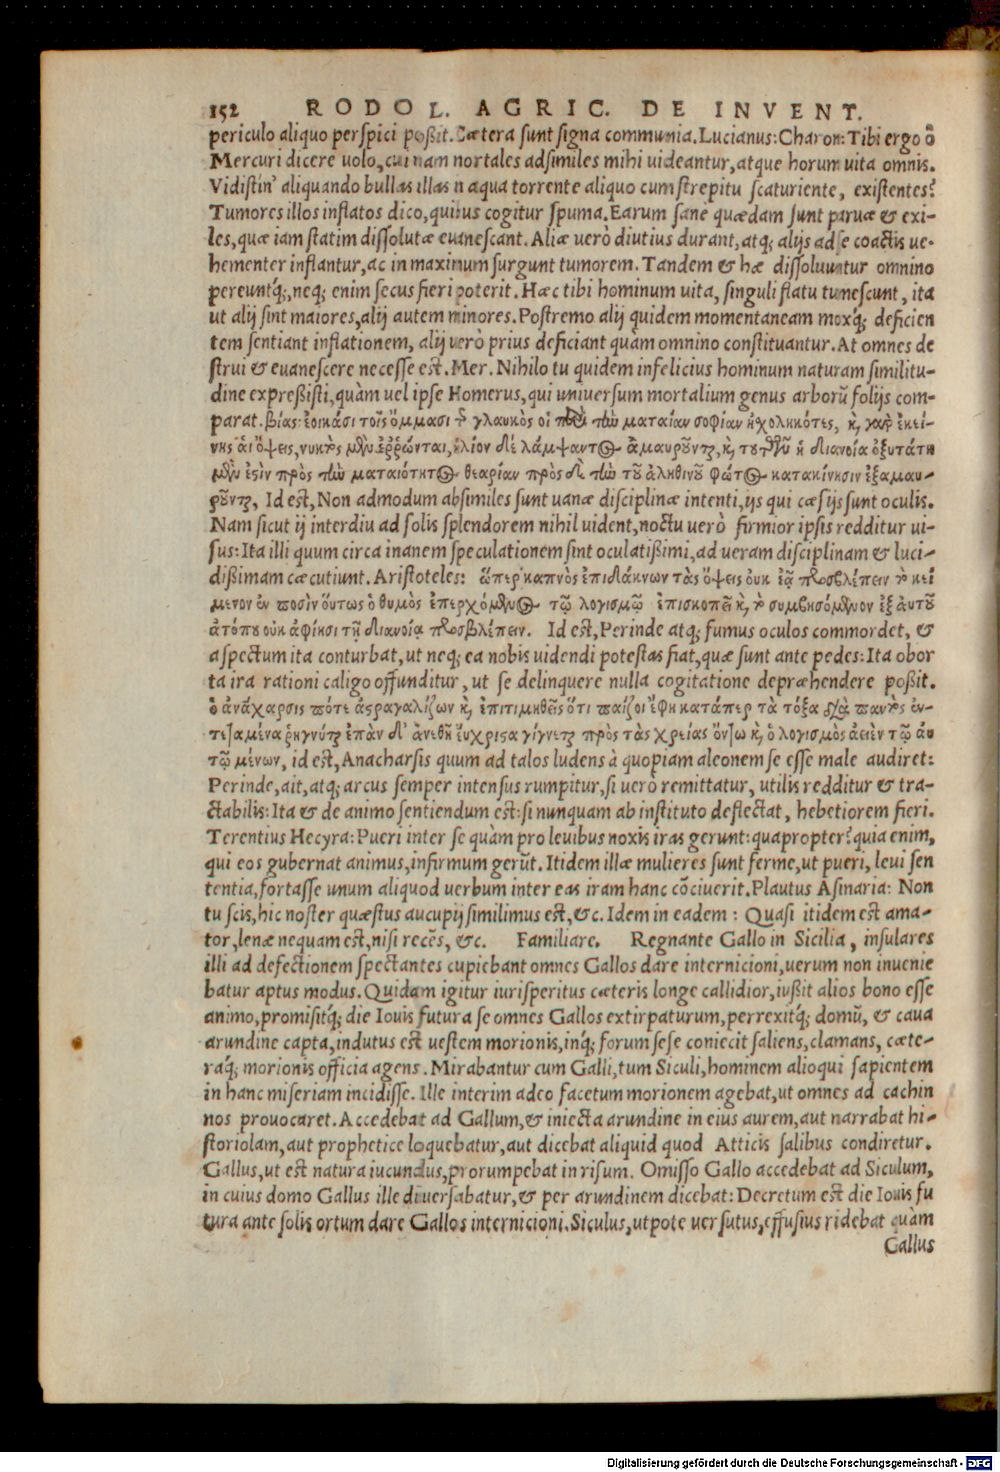 152 RODOL. AGRIC. DE INVENT.
periculo aliquo perſpici poßit. Cætera ſunt ſigna communia. Lucianus: Charon: Tibi ergo ô
Mercuri dicere uolo, cui nam mortales adſimiles mihi uideantur, atque horum uita omnis.
Vidiſtin' aliquando bullas illas in aqua torrente aliquo cum ſtrepitu ſcaturiente, exiſtentes?
Tumores illos inflatos dico, quibus cogitur ſpuma. Earum ſanè quædam ſunt paruæ & exi-
les, quæ iam ſtatim diſſolutæ euaneſcant. Aliæ uerò diutius durant, atq; alijs ad ſe coactis ue-
hementer inflantur, ac in maximum ſurgunt tumorem. Tandem & hæ diſſoluuntur omnino
pereuntq́;, neq; enim ſecus fieri poterit. Hæc tibi hominum uita, ſinguli flatu tumeſcunt, ita
ut alij ſint maiores, alij autem minores. Poſtremo alij quidem momentaneam moxq́; deficien
tem ſentiant inflationem, alij uerò prius deficiant quàm omnino conſtituantur. At omnes de
ſtrui & euaneſcere neceſſe eſt. Mer. Nihilo tu quidem infelicius hominum naturam ſimilitu-
dine expreßiſti, quàm uel ipſe Homerus, qui uniuerſum mortalium genus arborũ folijs com-
parat. βίας: ἐοικάσι τοῖς ὄμμασι τ͂ γλαυκὸς οἱ περὶ τὼ ματαίαν σοφίαν ἠχοληκότες, κ, γαρ ἐκεί-
νης ἁι ὄψεις, νυκτὸς μὲν ἐῤῥῶνται, ἡλίον δὲ λάμψαντος ἀμαυροῦντ, κ, τούτου ἡ διανοία ὀξυτάτη
μὲν ἐςὶν πρὸς τὼ ματαιότητος θεαρίαν πρὸς δὲ τὼ τοῦ ἀληθινοῦ φώτος κατακίνησιν ἐξαμαυ-
ροῦντ, Id eſt, Non admodum abſimiles ſunt uanæ diſciplinæ intenti, ijs qui cæſijs ſunt oculis.
Nam ſicut ij interdiu ad ſolis ſplendorem nihil uident, noctu uerò firmior ipſis redditur ui-
ſus: Ita illi quum circa inanem ſpeculationem ſint oculatißimi, ad ueram diſciplinam & luci-
dißimam cæcutiunt. Ariſtoteles: ὥπερ καπνὸς ἐπιδάκνων τὰς ὄψεις ὀυκ ἐᾷ προσβλέπειν τὸ κεί
μενον ἐν ποσὶν ὅυτως ὁ θυμὸς ἐπερχόμενος τῷ λογισμῷ ἐπισκοπεῖ κ, τὸ συμβησόμενον ἐξ ἀυτοῦ
ἀτόπου ὀυκ ἀφίησι τῇ διανοίᾳ προσβλέπειν. Id eſt, Perinde atq; fumus oculos commordet, &
aſpectum ita conturbat, ut neq; ea nobis uidendi poteſtas fiat, quæ ſunt ante pedes: Ita obor
ta ira rationi caligo offunditur, ut ſe delinquere nulla cogitatione depræhendere poßit.
ὁ ἀνάχαρσις πότε ἀςραγαλίζων κ, ἐπιτιμηθεὶς ὅτι παίζοι ἔφη κατάπερ τὰ τόξα διὰ παντὸς ἐν-
τεταμένα ῥηγνύτ ἐπὰν δ' ἀνεθῇ ἔυχριςα γίγνετ πρὸς τὰς χρείας ὅυτω κ, ὁ λογισμὸς ἀεὶ ἐν τῷ ἀυ
τῷ μένων, id eſt, Anacharſis quum ad talos ludens à quopiam aleonem ſe eſſe male audiret:
Perinde, ait, atq; arcus ſemper intenſus rumpitur, ſi uerò remittatur, utilis redditur & tra-
ctabilis: Ita & de animo ſentiendum eſt: ſi nunquam ab inſtituto deflectat, hebetiorem fieri.
Terentius Hecyra: Pueri inter ſe quàm pro leuibus noxis iras gerunt: quapropter? quia enim,
qui eos gubernat animus, infirmum gerũt. Itidem illæ mulieres ſunt ferme, ut pueri, leui ſen
tentia, fortaſſe unum aliquod uerbum inter eas iram hanc cõciuerit. Plautus Aſinaria: Non
tu ſcis, hic noſter quæſtus aucupij ſimilimus eſt, &c. Idem in eadem: Quaſi itidem eſt ama-
tor, lenæ nequam eſt, niſi recẽs, &c. Familiare. Regnante Gallo in Sicilia, inſulares
illi ad defectionem ſpectantes cupiebant omnes Gallos dare internicioni, uerum non inuenie
batur aptus modus. Quidam igitur iuriſperitus cæteris longe callidior, iußit alios bono eſſe
animo, promiſitq́; die Iouis futura ſe omnes Gallos extirpaturum, perrexitq́; domũ, & caua
arundine capta, indutus eſt ueſtem morionis, inq́; forum ſeſe coniecit ſaliens, clamans, cæte-
raq́; morionis officia agens. Mirabantur cum Galli, tum Siculi, hominem alioqui ſapientem
in hanc miſeriam incidiſſe. Ille interim adeo facetum morionem agebat, ut omnes ad cachin
nos prouocaret. Accedebat ad Gallum, & iniecta arundine in eius aurem, aut narrabat hi-
ſtoriolam, aut prophetice loquebatur, aut dicebat aliquid quod Atticis ſalibus condiretur.
Gallus, ut eſt natura iucundus, prorumpebat in riſum. Omiſſo Gallo accedebat ad Siculum,
in cuius domo Gallus ille diuerſabatur, & per arundinem dicebat: Decretum eſt die Iouis fu
tura ante ſolis ortum dare Gallos internicioni. Siculus, utpote uerſutus, effuſius ridebat quàm
Gallus
Digitalisierung gefördert durch die Deutsche Forschungsgemeinschaft - DFG